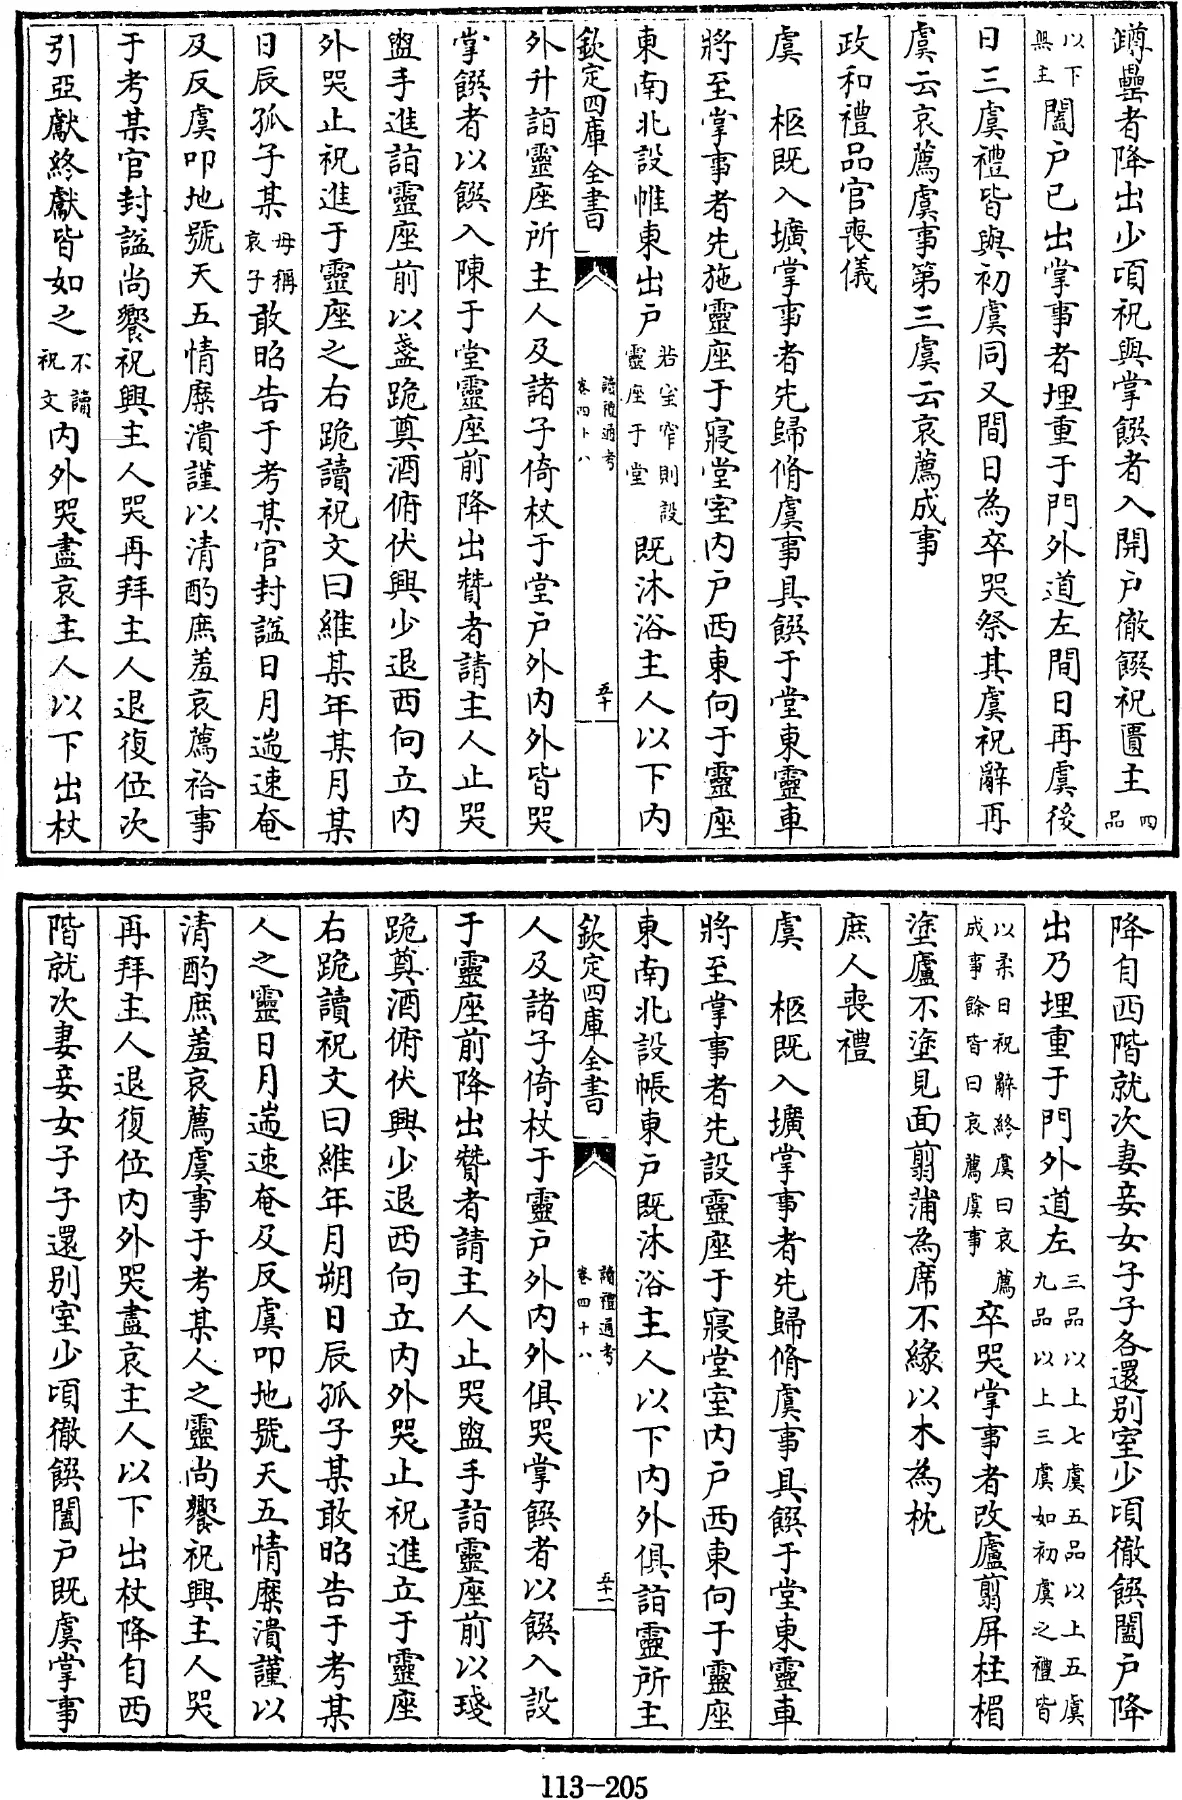 罇罍者降出少頃祝與掌饌者入開户徹饌祝匱主四品
以下無主闔户已出掌事者埋重于門外道左間日再虞後
日三虞禮皆與初虞同又間日為卒哭祭其虞祝辭再
虞云哀薦虞事第三虞云哀薦成事
政和禮品官喪儀
虞　柩既入壙掌事者先歸脩虞事具饌于堂東靈車
將至掌事者先施靈座于寢堂室内户西東向于靈座
東南北設帷東出户若室窄則設靈座于堂既沐浴主人以下内
欽定四庫全書
讀禮通考
卷四十八
五十
外升詣靈座所主人及諸子倚杖于堂户外内外皆哭
掌饌者以饌入陳于堂靈座前降出贊者請主人止哭
盥手進詣靈座前以盞跪奠酒俯伏興少退西向立内
外哭止祝進于靈座之右跪讀祝文曰維某年某月某
日辰孤子某母稱哀子敢昭告于考某官封諡日月遄速奄
及反虞叩地號天五情糜潰謹以清酌庶羞哀薦祫事
于考某官封諡尚饗祝興主人哭再拜主人退復位次
引亞獻終獻皆如之不讀祝文内外哭盡哀主人以下出杖
降自西階就次妻妾女子子各還别室少頃徹饌闔户降
出乃埋重于門外道左三品以上七虞五品以上五虞九品以上三虞如初虞之禮皆
以柔日祝辭終虞曰哀薦成事餘皆曰哀薦虞事卒哭掌事者改廬翦屏柱楣
塗廬不塗見面翦蒲為席不緣以木為枕
庶人喪禮
虞　柩既入壙掌事者先歸脩虞事具饌于堂東靈車
將至掌事者先設靈座于寢堂室内户西東向于靈座
東南北設帳東户既沐浴主人以下内外俱詣靈所主
欽定四庫全書
讀禮通考
卷四十八
五十一
人及諸子倚杖于靈户外内外俱哭掌饌者以饌入設
于靈座前降出贊者請主人止哭盥手詣靈座前以琖
跪奠酒俯伏興少退西向立内外哭止祝進立于靈座
右跪讀祝文曰維年月朔日辰孤子某敢昭告于考某
人之靈日月遄速奄及反虞叩地號天五情糜潰謹以
清酌庶羞哀薦虞事于考某人之靈尚饗祝興主人哭
再拜主人退復位内外哭盡哀主人以下出杖降自西
階就次妻妾女子子還别室少頃徹饌闔户既虞掌事
113-205